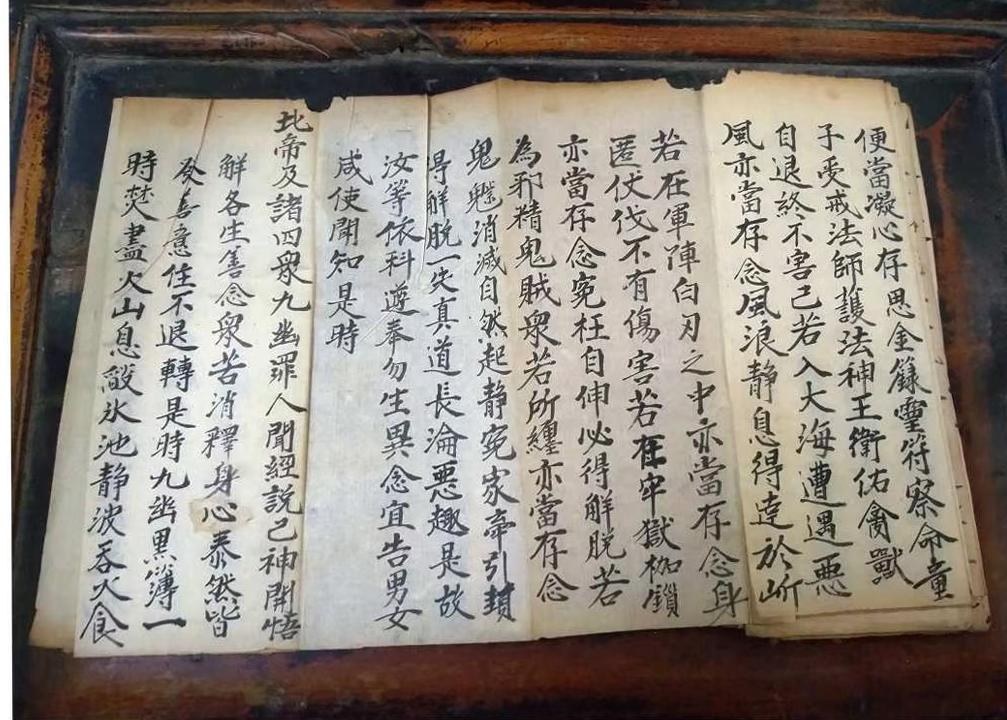 便當凝心存思金籙靈符察命童
子受戒法師護法神王衛佑禽獸
自退終不害己若入大海遭遇惡
風亦當存念風浪静息得達於岍
若在軍陣白刃之中亦當存念身
匿伏伐不有傷害若在牢獄枷鎖
亦當存念寃枉自伸必得解脱若
為邪精鬼賊衆若所纏亦當存念
鬼魃消滅自然起静寃家牽引
得解脱一失真道長淪惡趣是故
汝等依科遵奉勿生異念宜告男女
咸使聞知是時
北帝及諸四衆九幽罪人聞經説已神開悟
解各生善念衆苦消釋身心泰然皆
發善意住不退轉是時九幽黑簿一
時焚盡火山息
氷池静波吞火食